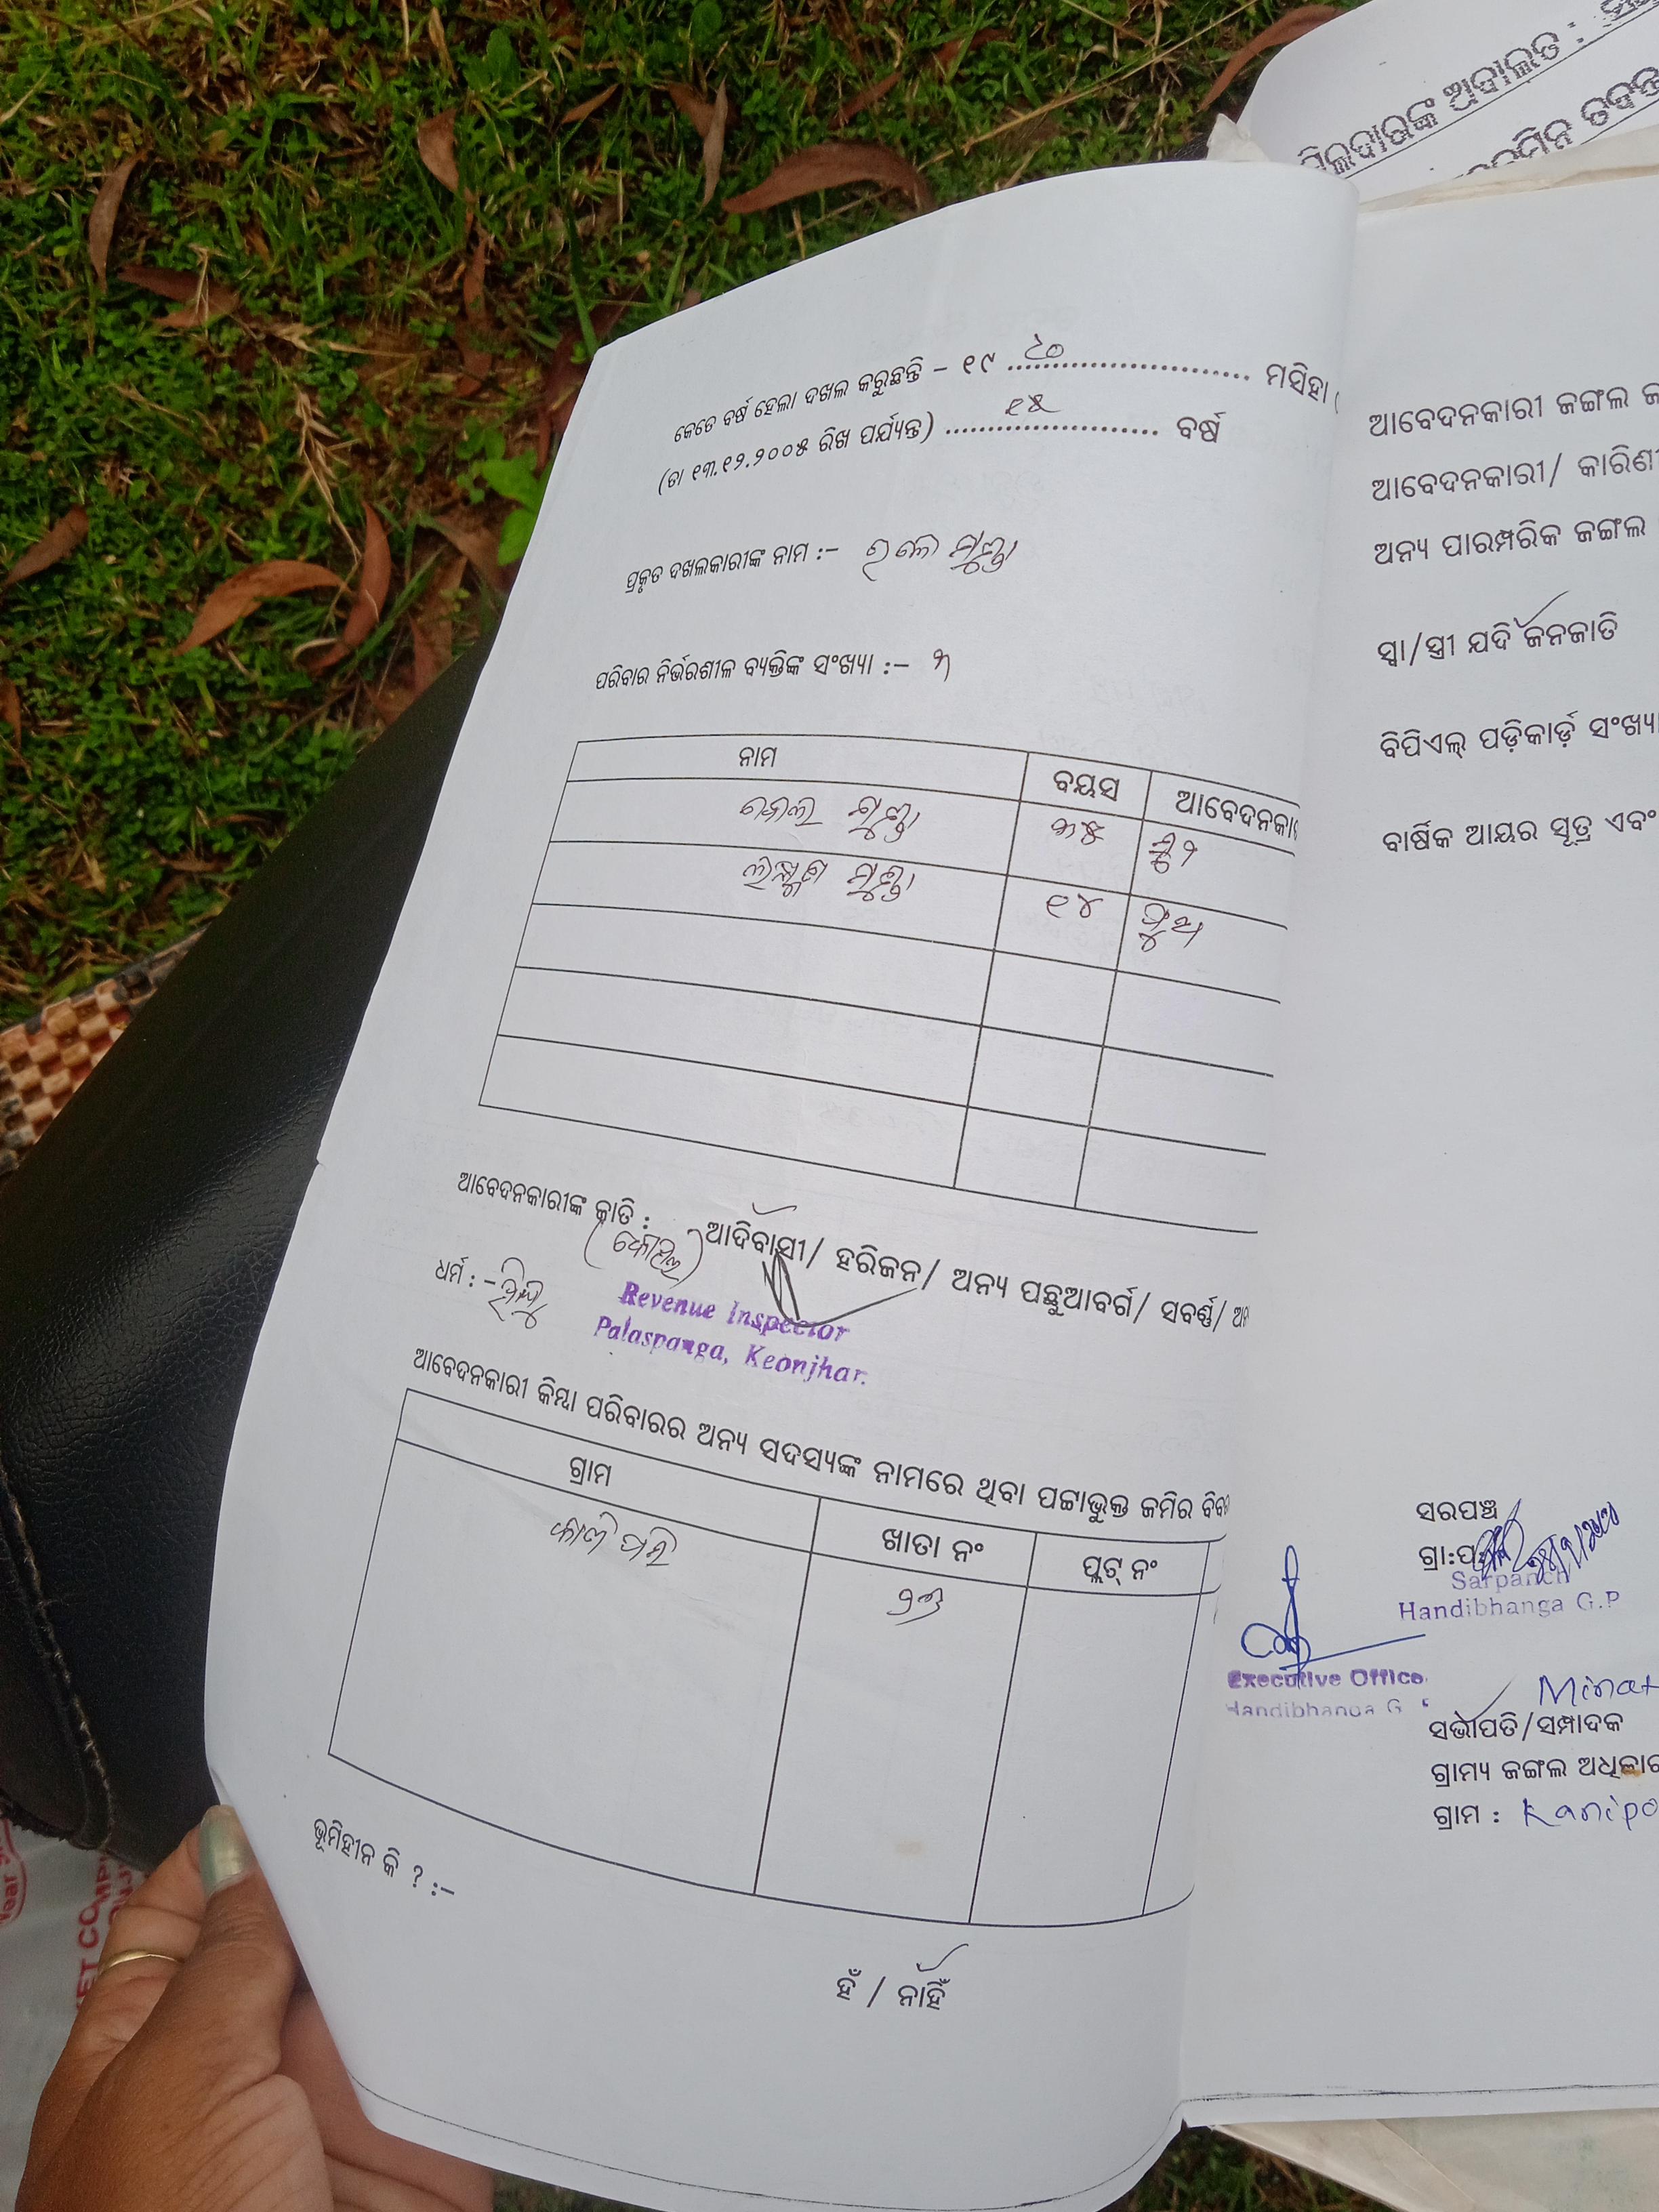 ମିଲଦାରଙ୍କ ଅଦାଲତ :
କେତେ ବର୍ଷ ହେଲା ଦଖଲ କରୁଛନ୍ତି – ୧୯ ୯୦ ମସିହା (
(ତା ୧୩.୧୨.୨୦୦୫ ରିଖ ପର୍ଯ୍ୟନ୍ତ) ୧୫ ବର୍ଷ
ପ୍ରକୃତ ଦଖଲକାରୀଙ୍କ ନାମ :– ମୁଣ୍ଡା
ପରିବାର ନିର୍ଭରଶୀଳ ବ୍ୟକ୍ତିଙ୍କ ସଂଖ୍ୟା :– ୩
ନାମ ବୟସ ଆବେଦନକାର
ମୁଣ୍ଡା ୩୫
ମୁଣ୍ଡା ୧୪ ପୁଅ
ଆବେଦନକାରୀଙ୍କ ଜାତି : ଆଦିବାସୀ/ ହରିଜନ/ ଅନ୍ୟ ପଛୁଆବର୍ଗ/ ସବର୍ଣ୍ଣ/
(କୋହ୍ଲ)
ଧର୍ମ : – ହିନ୍ଦୁ
Revenue Inspector
Palaspanga, Keonjhar.
ଆବେଦନକାରୀ କିମ୍ବା ପରିବାରର ଅନ୍ୟ ସଦସ୍ୟଙ୍କ ନାମରେ ଥିବା ପଟ୍ଟାଭୁକ୍ତ ଜମିର
ଗ୍ରାମ ଖାତା ନଂ ପ୍ଲଟ୍ ନଂ
ଭୂମିହୀନ କି ? :–
ହଁ / ନାହିଁ
ଆବେଦନକାରୀ ଜଙ୍ଗଲ
ଆବେଦନକାରୀ/ କାରିଣୀ
ଅନ୍ୟ ପାରମ୍ପରିକ ଜଙ୍ଗଲ
ସ୍ୱା/ସ୍ତ୍ରୀ ଯଦି ଜନଜାତି
ବିପିଏଲ୍ ପଡ଼ିକାର୍ଡ଼ ସଂଖ୍ୟା
ବାର୍ଷିକ ଆୟର ସୂତ୍ର ଏବଂ
ସରପଞ୍ଚ
ଗ୍ରା:ପ
Sarpanch
Handibhanga G.P
Executive Office
Handibhanga G
Minat
ସଭାପତି/ସମ୍ପାଦକ
ଗ୍ରାମ୍ୟ ଜଙ୍ଗଲ ଅଧିକାର
ଗ୍ରାମ : Kanipo